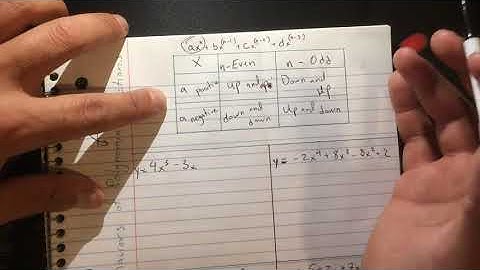 ax^n + bx^(n-1) + cx^(n-2) + dx^(n-3)
X n-Even n - Odd
a positive Up and up Down and Up
a negative down and down Up and down
y= 4x³ - 3x
y= -2x⁴ + 8x³ - 8x² + 2